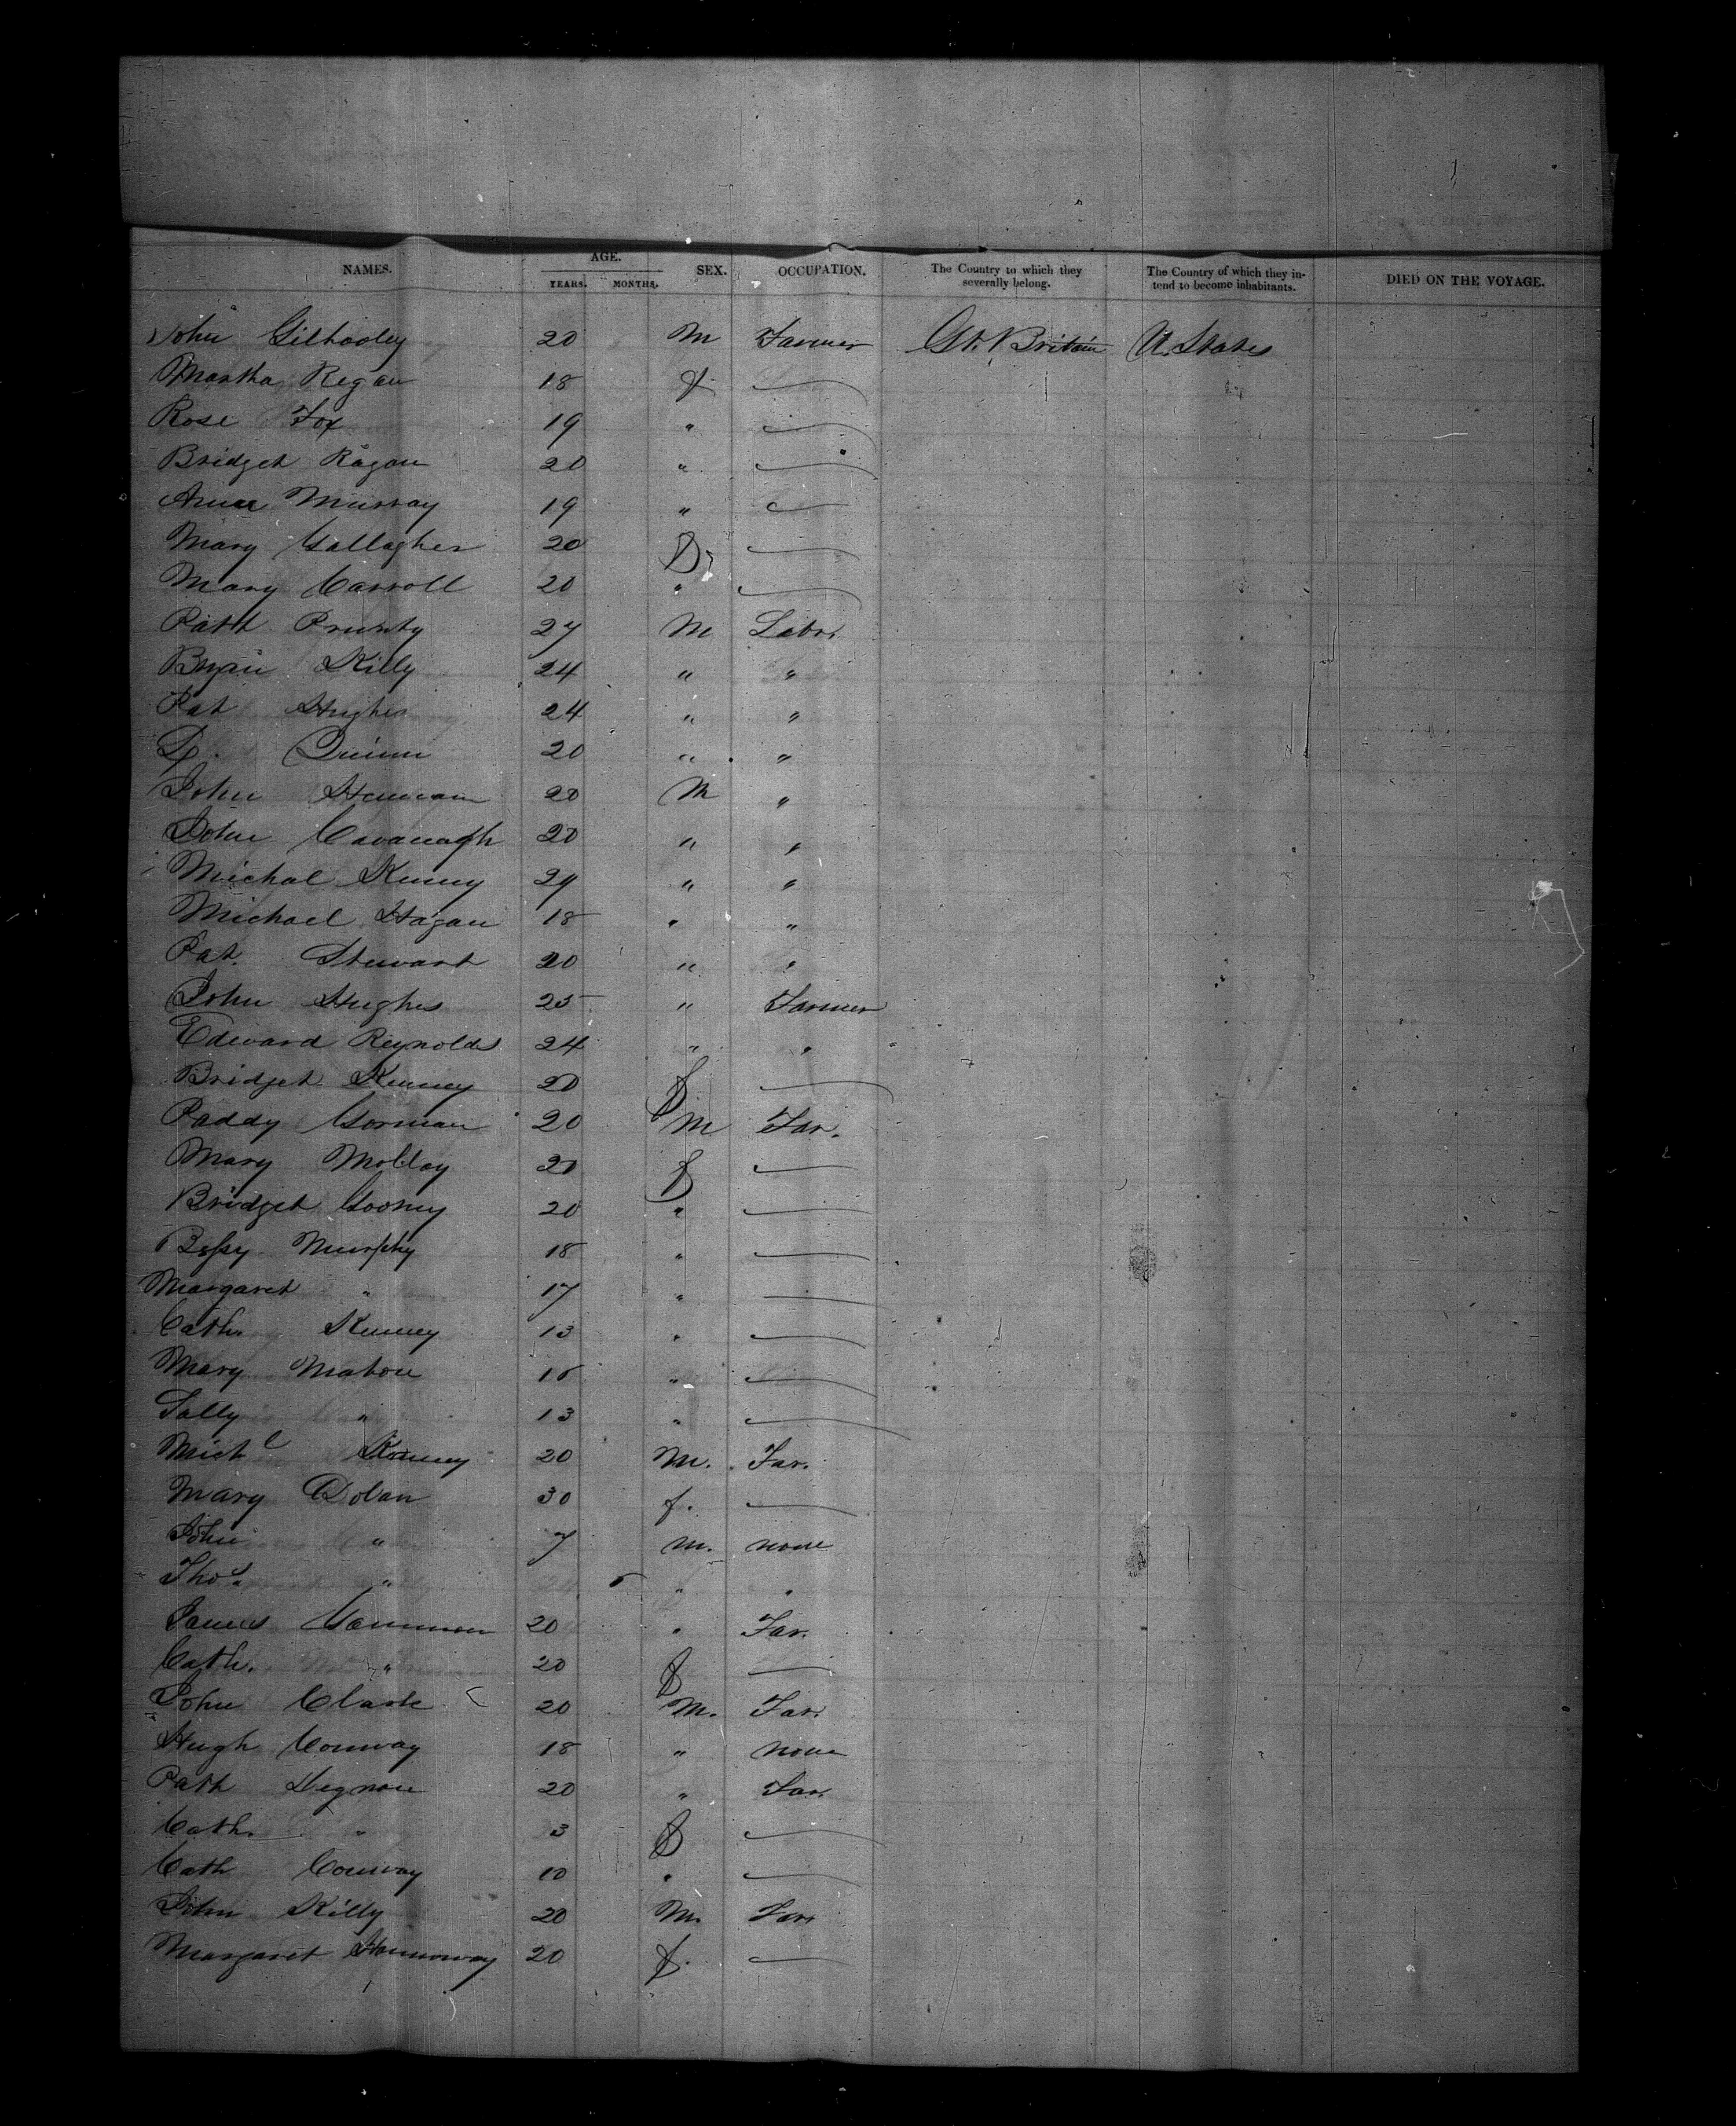 NAMES. AGE. YEARS. MONTHS. SEX. OCCUPATION. The Country to which they severally belong. The Country of which they intend to become inhabitants. DIED ON THE VOYAGE.
John Gilhooley 20 M Farmer Gt. Britain U. States
Martha Regan 18 f
Rose Fox 19 "
Bridget Ragan 20 "
Anne Murray 19 "
Mary Gallagher 20 f
Mary Carroll 20 "
Patk Prunty 27 M Labr.
Bryan Killy 24 " "
Pat Hughes 24 " "
Quinn 20 " "
John 20 M "
John Cavanagh 20 " "
Michal Kenny 29 " "
Michael Hagan 18 " "
Pat. Stewart 20 " "
John Hughes 25 " Farmer
Edward Reynolds 24 " "
Bridget Kenney 20 f
Paddy Gorman 20 M Far.
Mary Molloy 20 f
Bridget 20 "
Bessy Murphy 18 "
Margaret " 17 "
Cath. Kenney 13 "
Mary Mahon "
Sally " 13 "
Michl Kenney 20 M. Far.
Mary Dolan 30 f.
John " 7 m. none
Thos. " " "
James Gammon 20 " Far.
Cath. " 20 f
John Clark 20 M. Far.
Hugh Conway 18 " none
Patk Degnan 20 " Far.
Cath. " 3 f
Cath Conway 10 "
John Killy 20 M. Far.
Margaret 20 f.